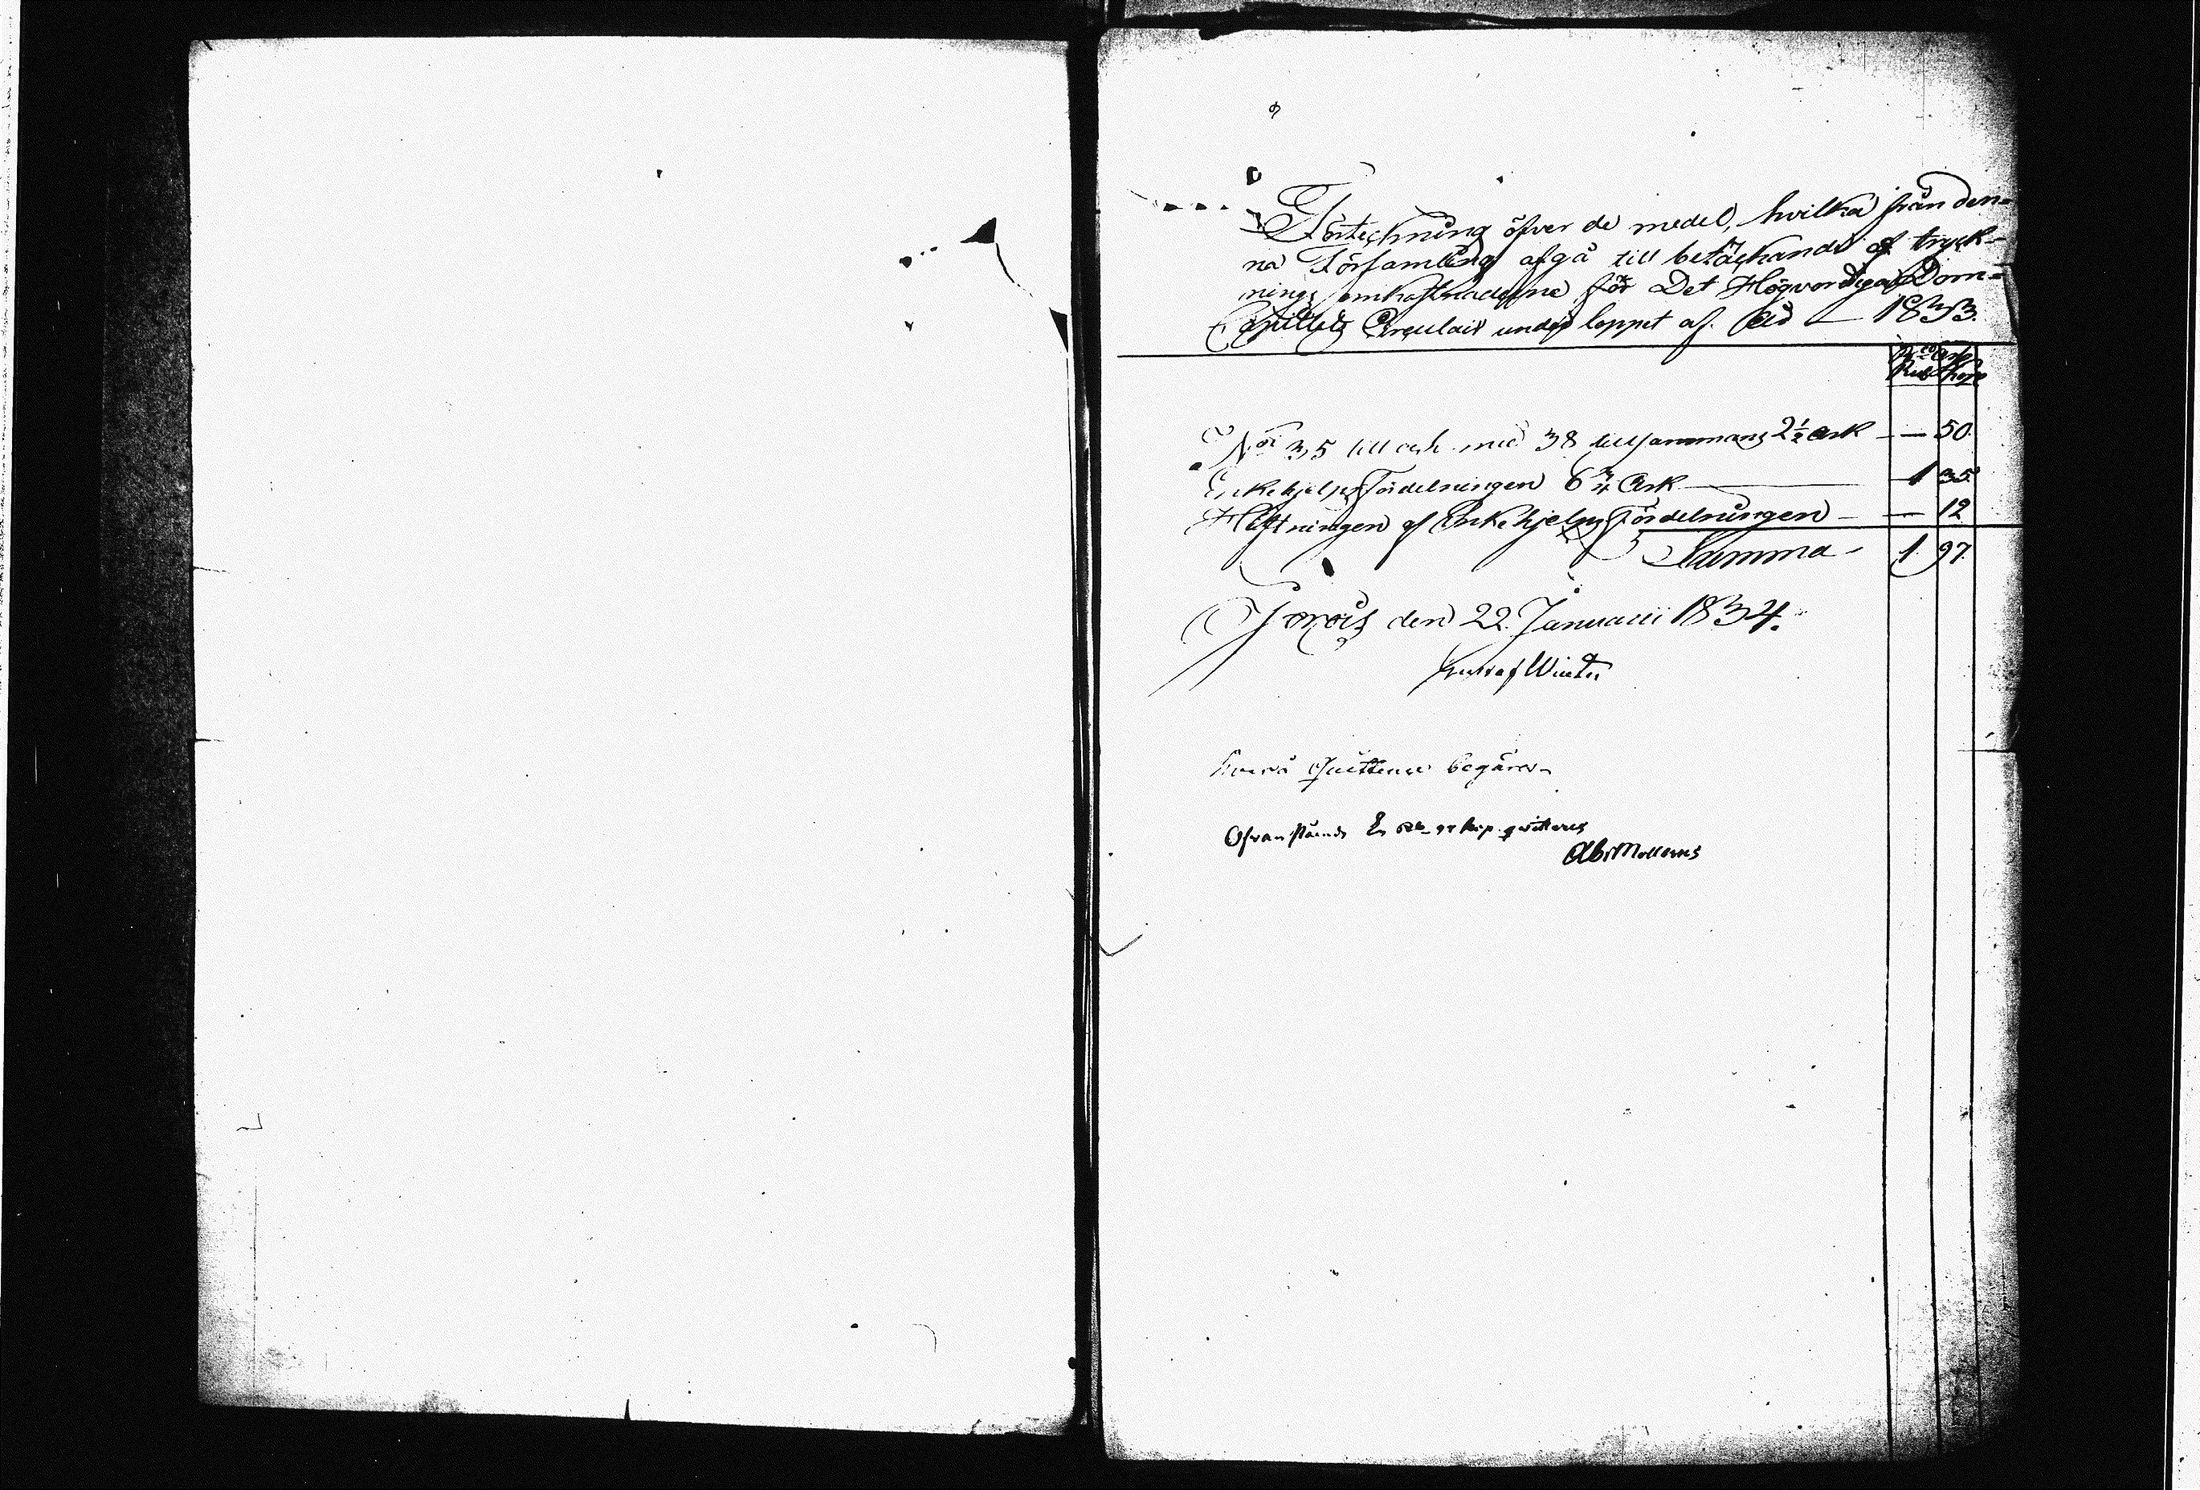 Förteckning öfver de medel, hvilka från den=
na Församling afgå till betäckande af tryck=
nings omkostnaderne för Det Högvördiga Dom=
Capitlets Circulair under loppet af År — 1833.
Rub. Kop.
N:ris 35 till och med 38 tillsammans 2 1/2 Ark — — 50.
Enkehjelps Fördelningen 6 3/4 Ark — 1 35.
Häftningen af Enkehjelps Fördelningen — — 12.
Summa — 1. 97.
den 22. Januarii 1834.
Gustaf Winter
hvarå quittence begäres.
Ofvanstående En Rub. 97 kop. qvitteres